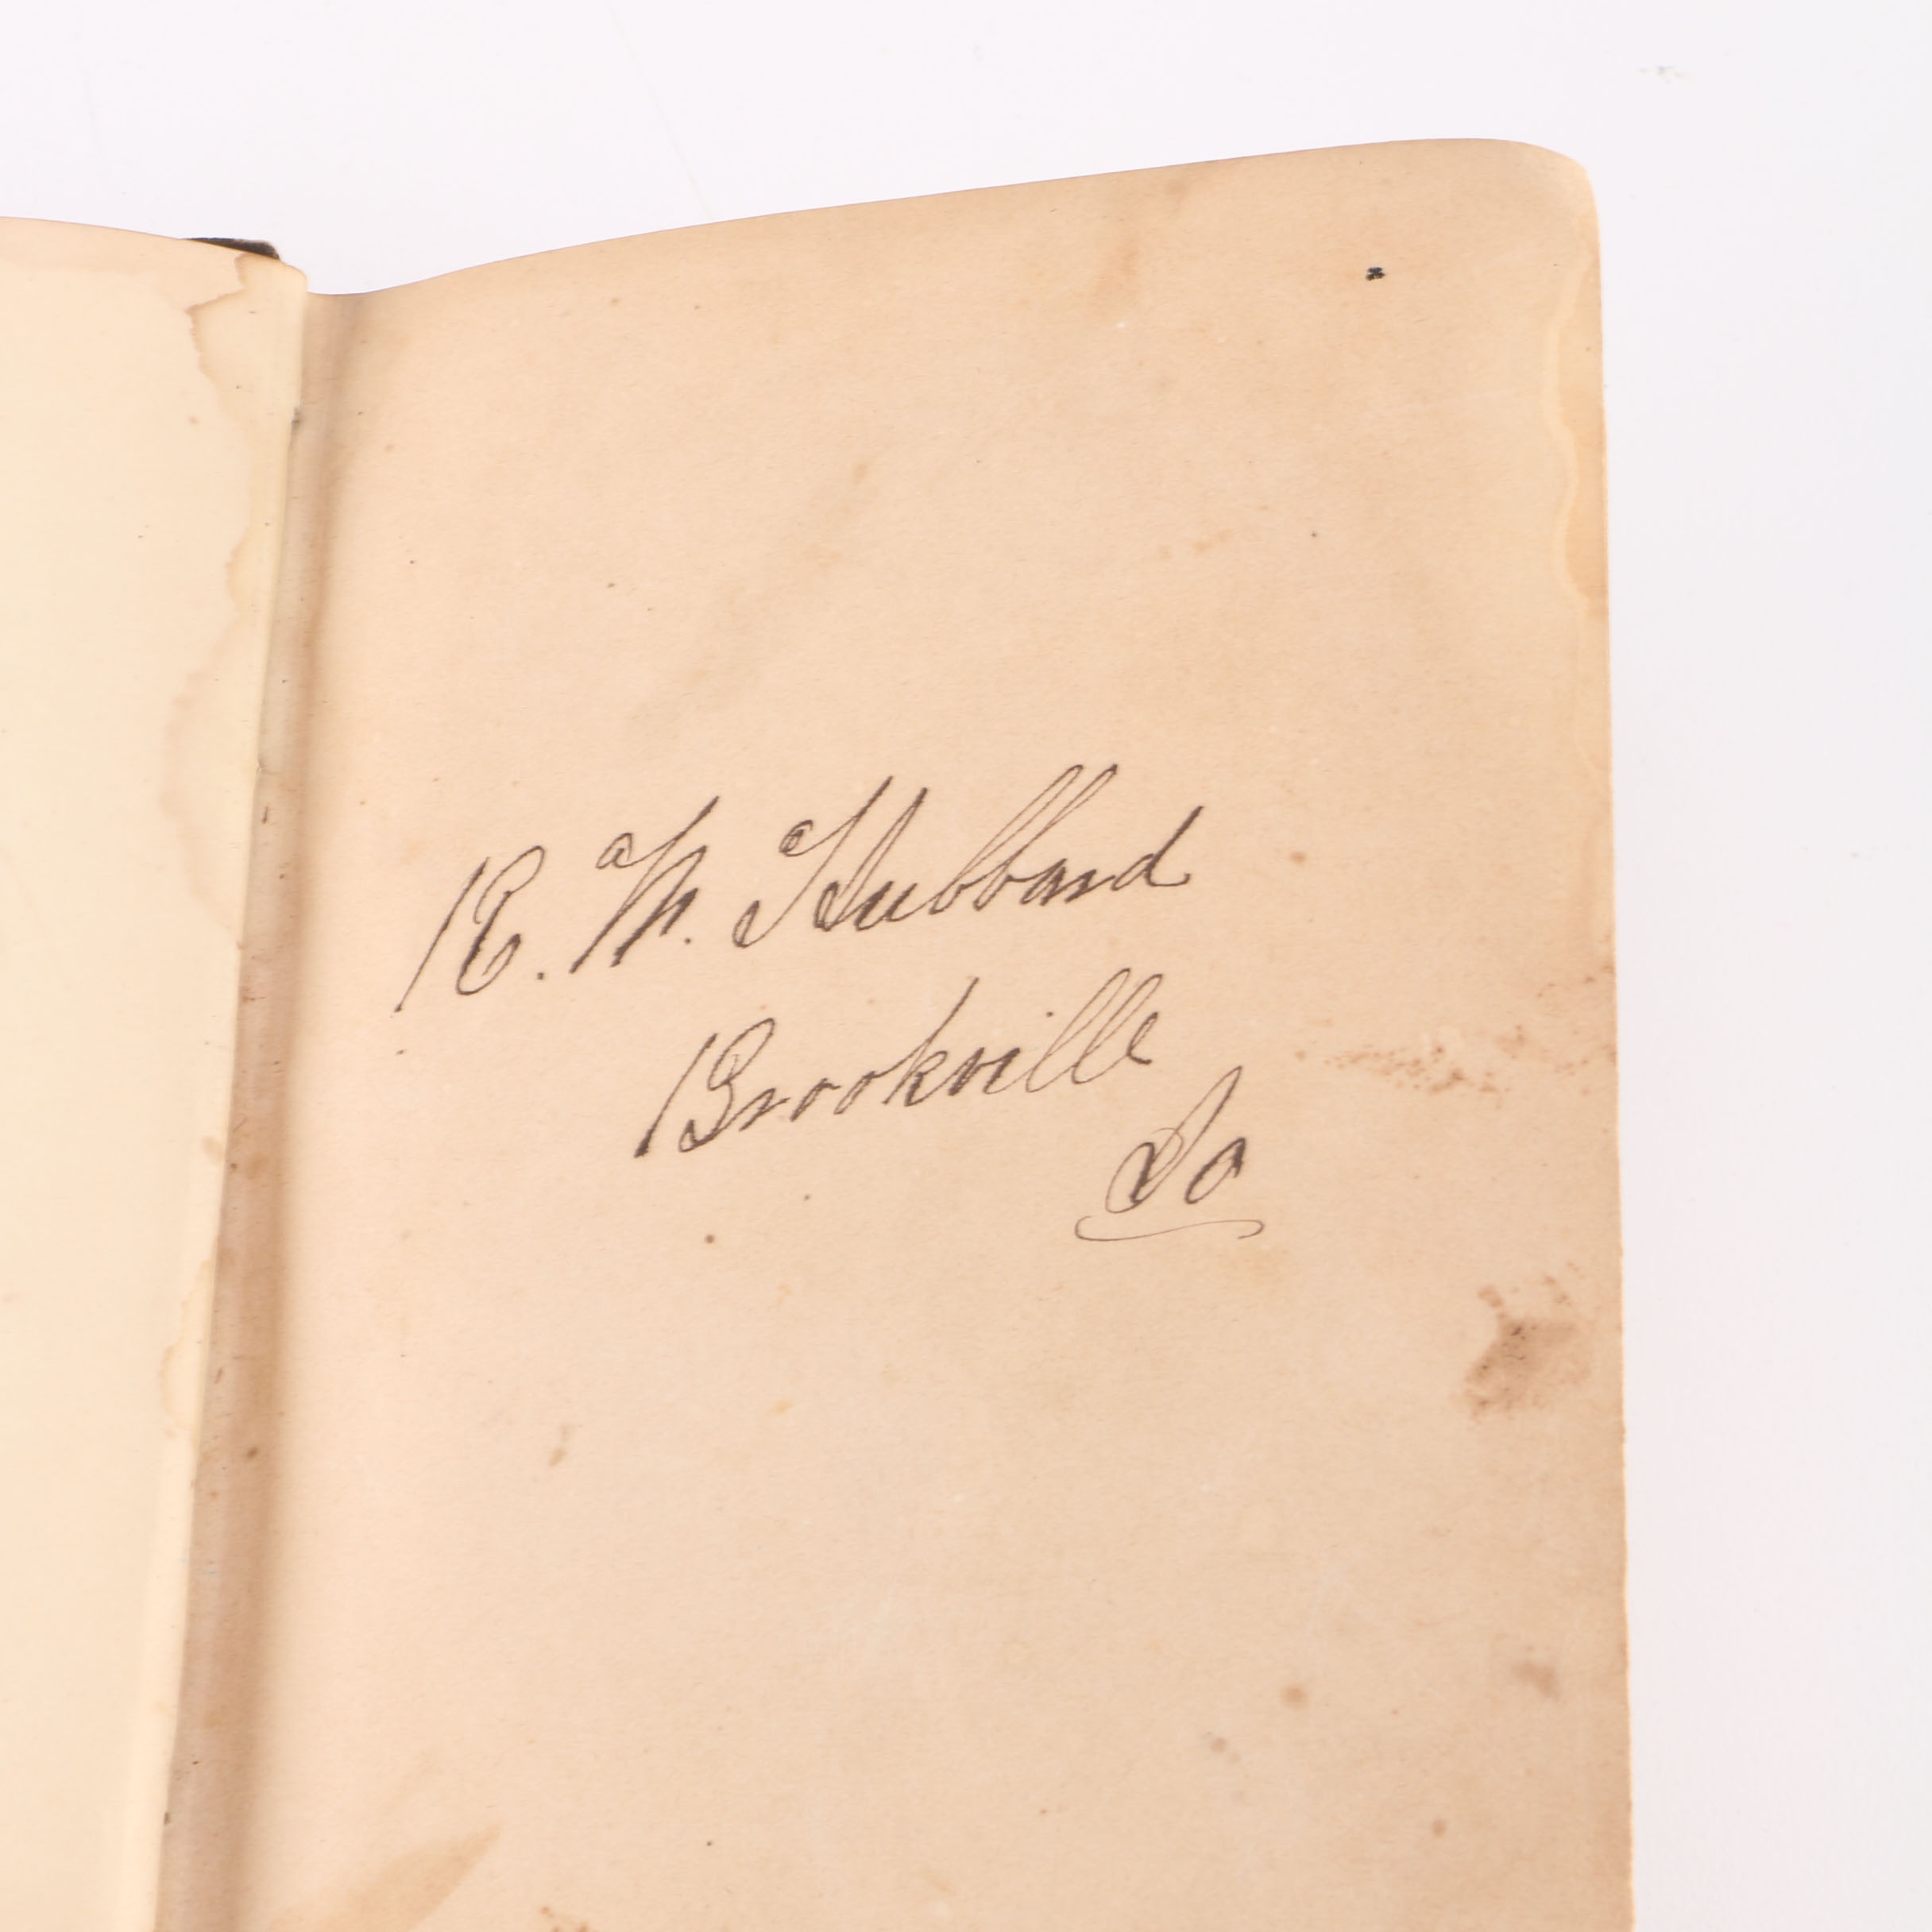 R. M. Hubbard
Brookville
Io